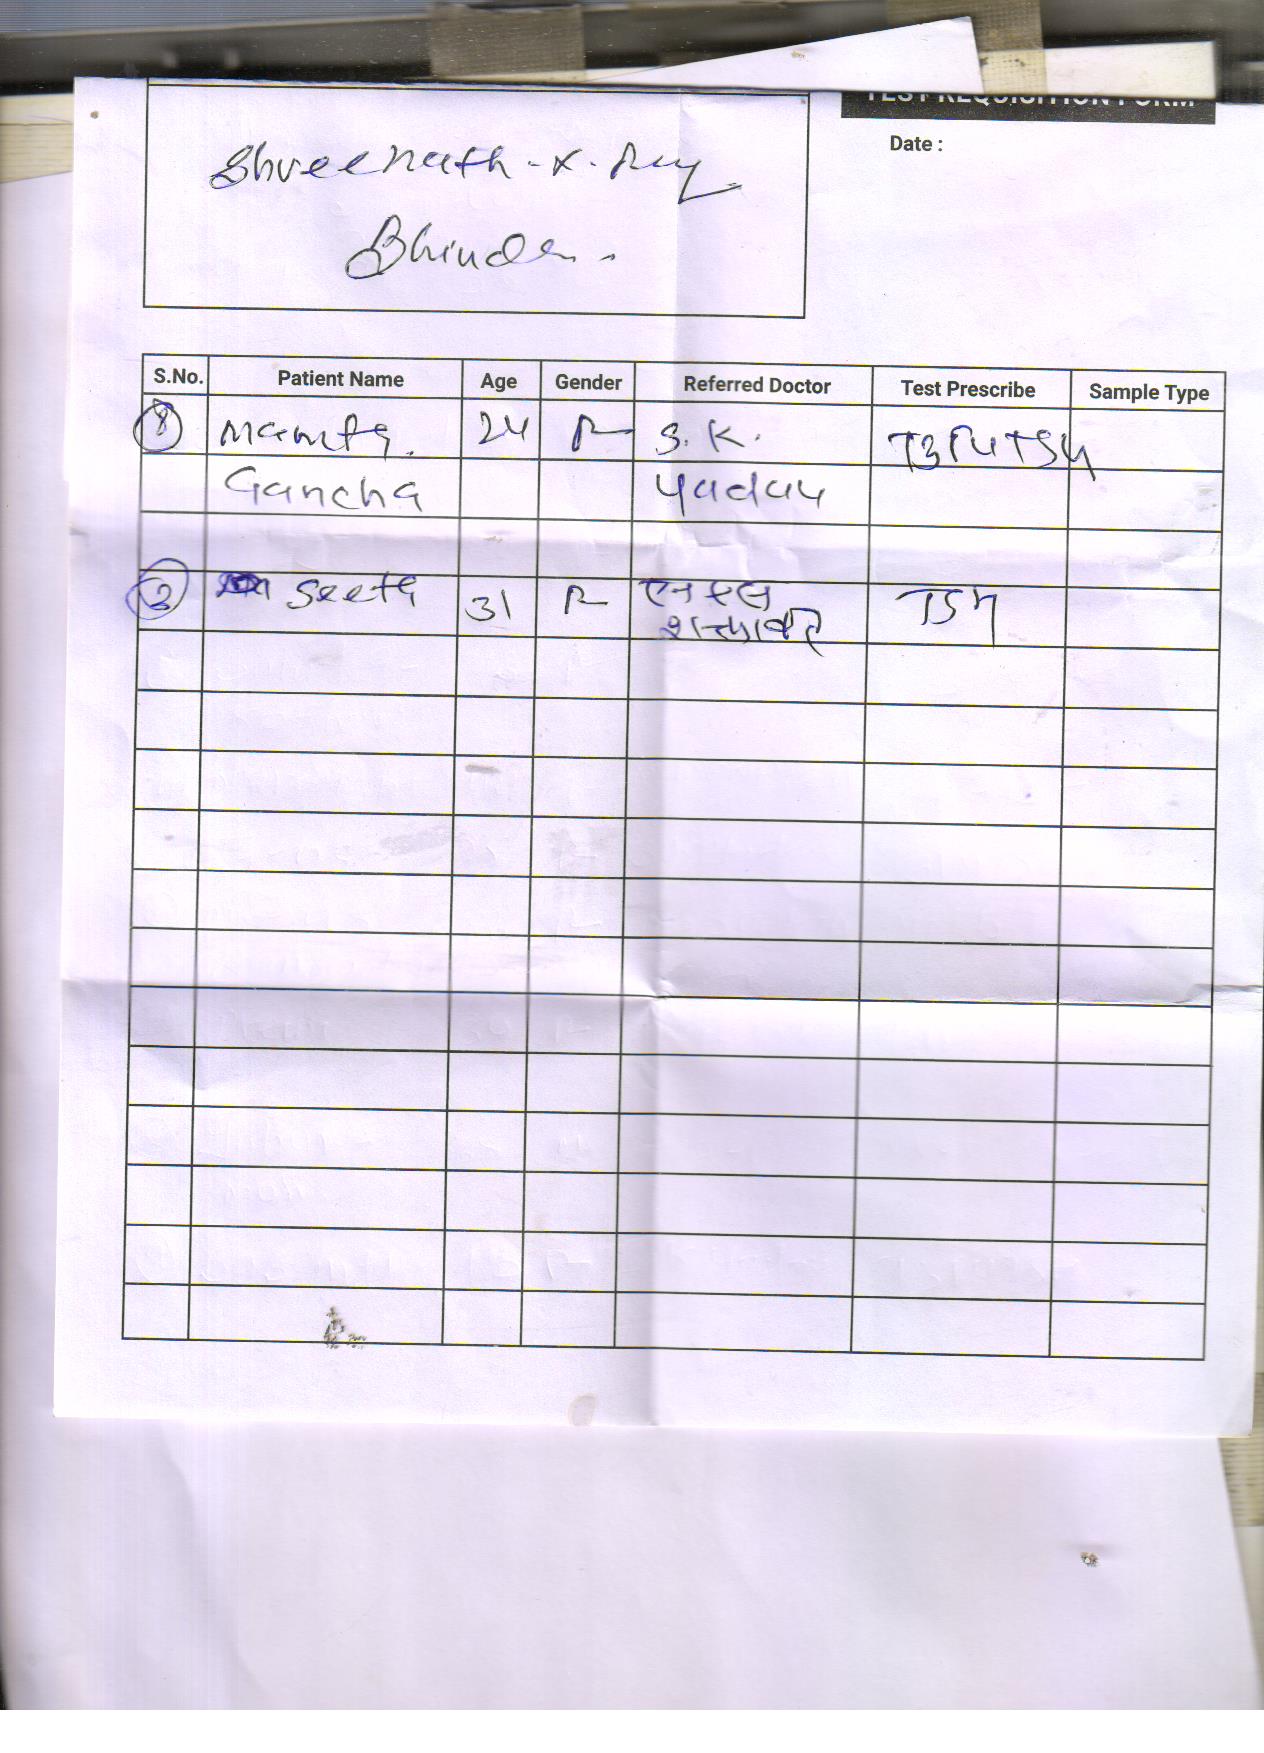 TEST REQUISITION FORM
Date :
Shreenath-x. Ray
Bhinder.
S.No. Patient Name Age Gender Referred Doctor Test Prescribe Sample Type
Mamta. 24 F S. K. T3T4TSH
Gancha Yadav
2 Seeta 31 F एन एस TSH
शक्तावत